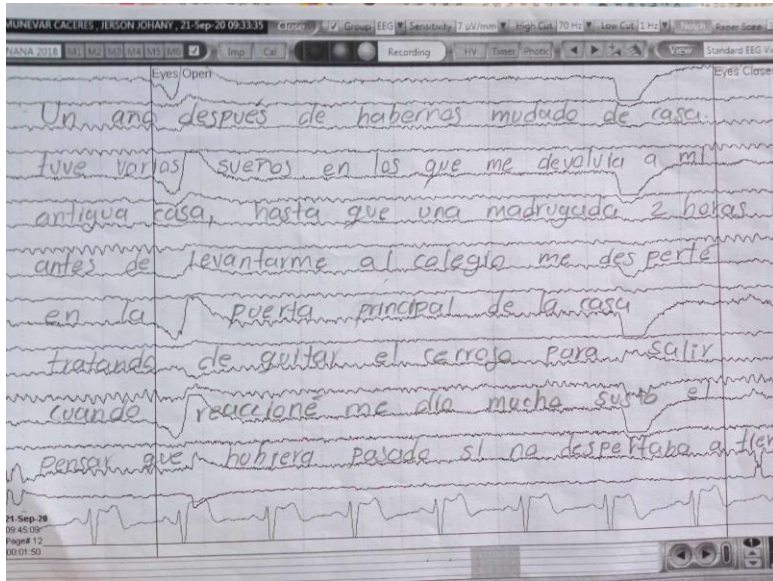 MUNEVAR CACERES, JERSON JOHANY, 21-Sep-20 09:33:35 Close Group EEG Sensitivity 7 µV/mm High Cut 70 Hz Low Cut 1 Hz Notch
NANA 2018 M1 M2 M3 M4 M5 M6 Imp Cal Recording HV Timer Photic View Standard EEG
Eyes Open Eyes Close
Un año después de habernos mudado de casa.
tuve varios sueños en los que me devolvía a mi
antigua casa, hasta que una madrugada 2 horas
antes de levantarme al colegio me desperté
en la puerta principal de la casa
tratando de quitar el cerrojo para salir
cuando reaccioné me dio mucho susto el
pensar que hubiera pasado si no despertaba a tiem
21-Sep-20
09:45:09
Page# 12
00:01:50